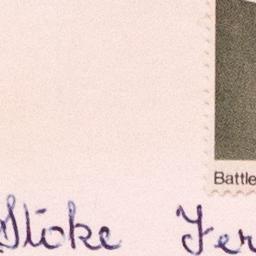 Battle
Stoke Fer